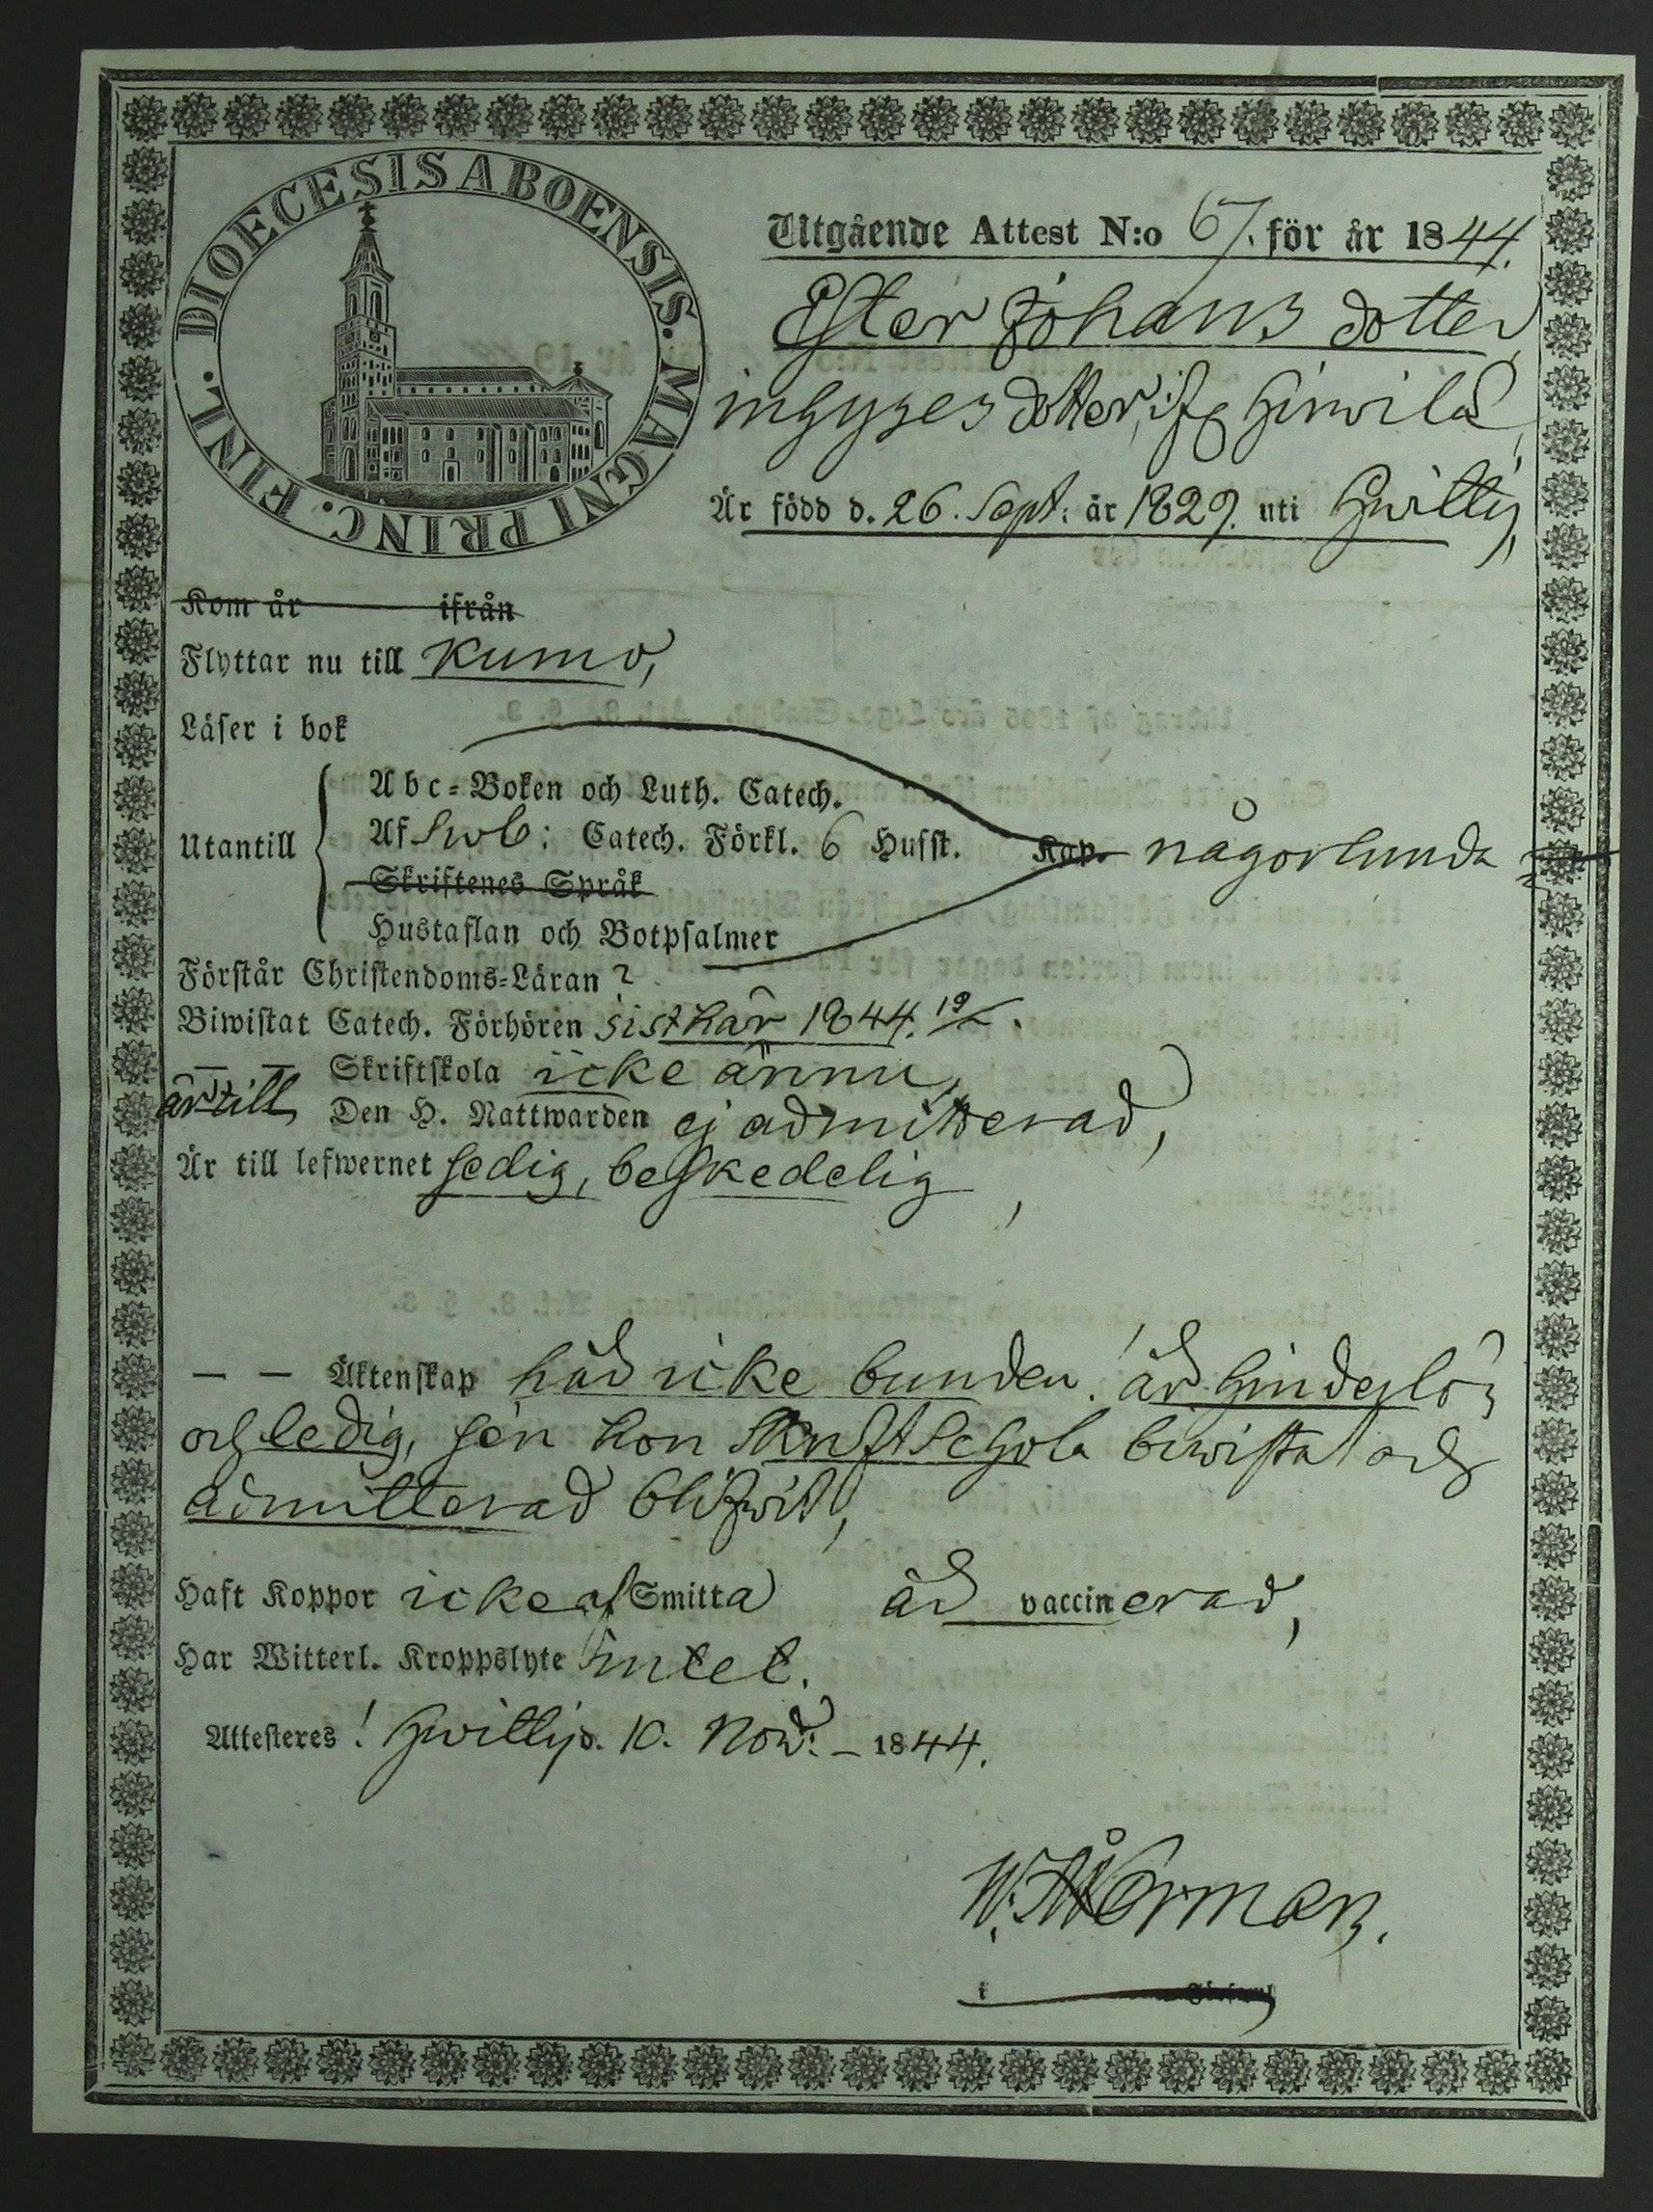 DIOECESIS ABOENSIS. MAGNI PRINC. FINL.
Utgående Attest N:o 67. för år 1844.
Ester Johans dotter
inhyses dotter, ifr Hirvilä,
Är född d. 26. Sept: år 1829. uti Hvittis,
Kom år ifrån
Flyttar nu till Kumo,
Läser i bok
Abc-Boken och Luth. Catech.
Utantill Af Swb: Catech. Förkl. 6 Hufst. Kap. någorlunda
Skriftenes Språk
Hustaflan och Botpsalmer
Förstår Christendoms-Läran?
Biwistat Catech. Förhören sist här 1844.
— — Skriftskola icke ännu,
är till Den H. Nattwarden ej admitterad,
Är till lefwernet sedig, beskedelig,
— — Äktenskap här icke bunden. är hinderlös
och ledig, sen hon Skriftschola bewistat och
admitterad blifwit,
Haft Koppor icke af Smitta är vaccinerad,
Har Witterl. Kroppslyte intet.
Attesteres! Hvittis d. 10. Nov: – 1844.